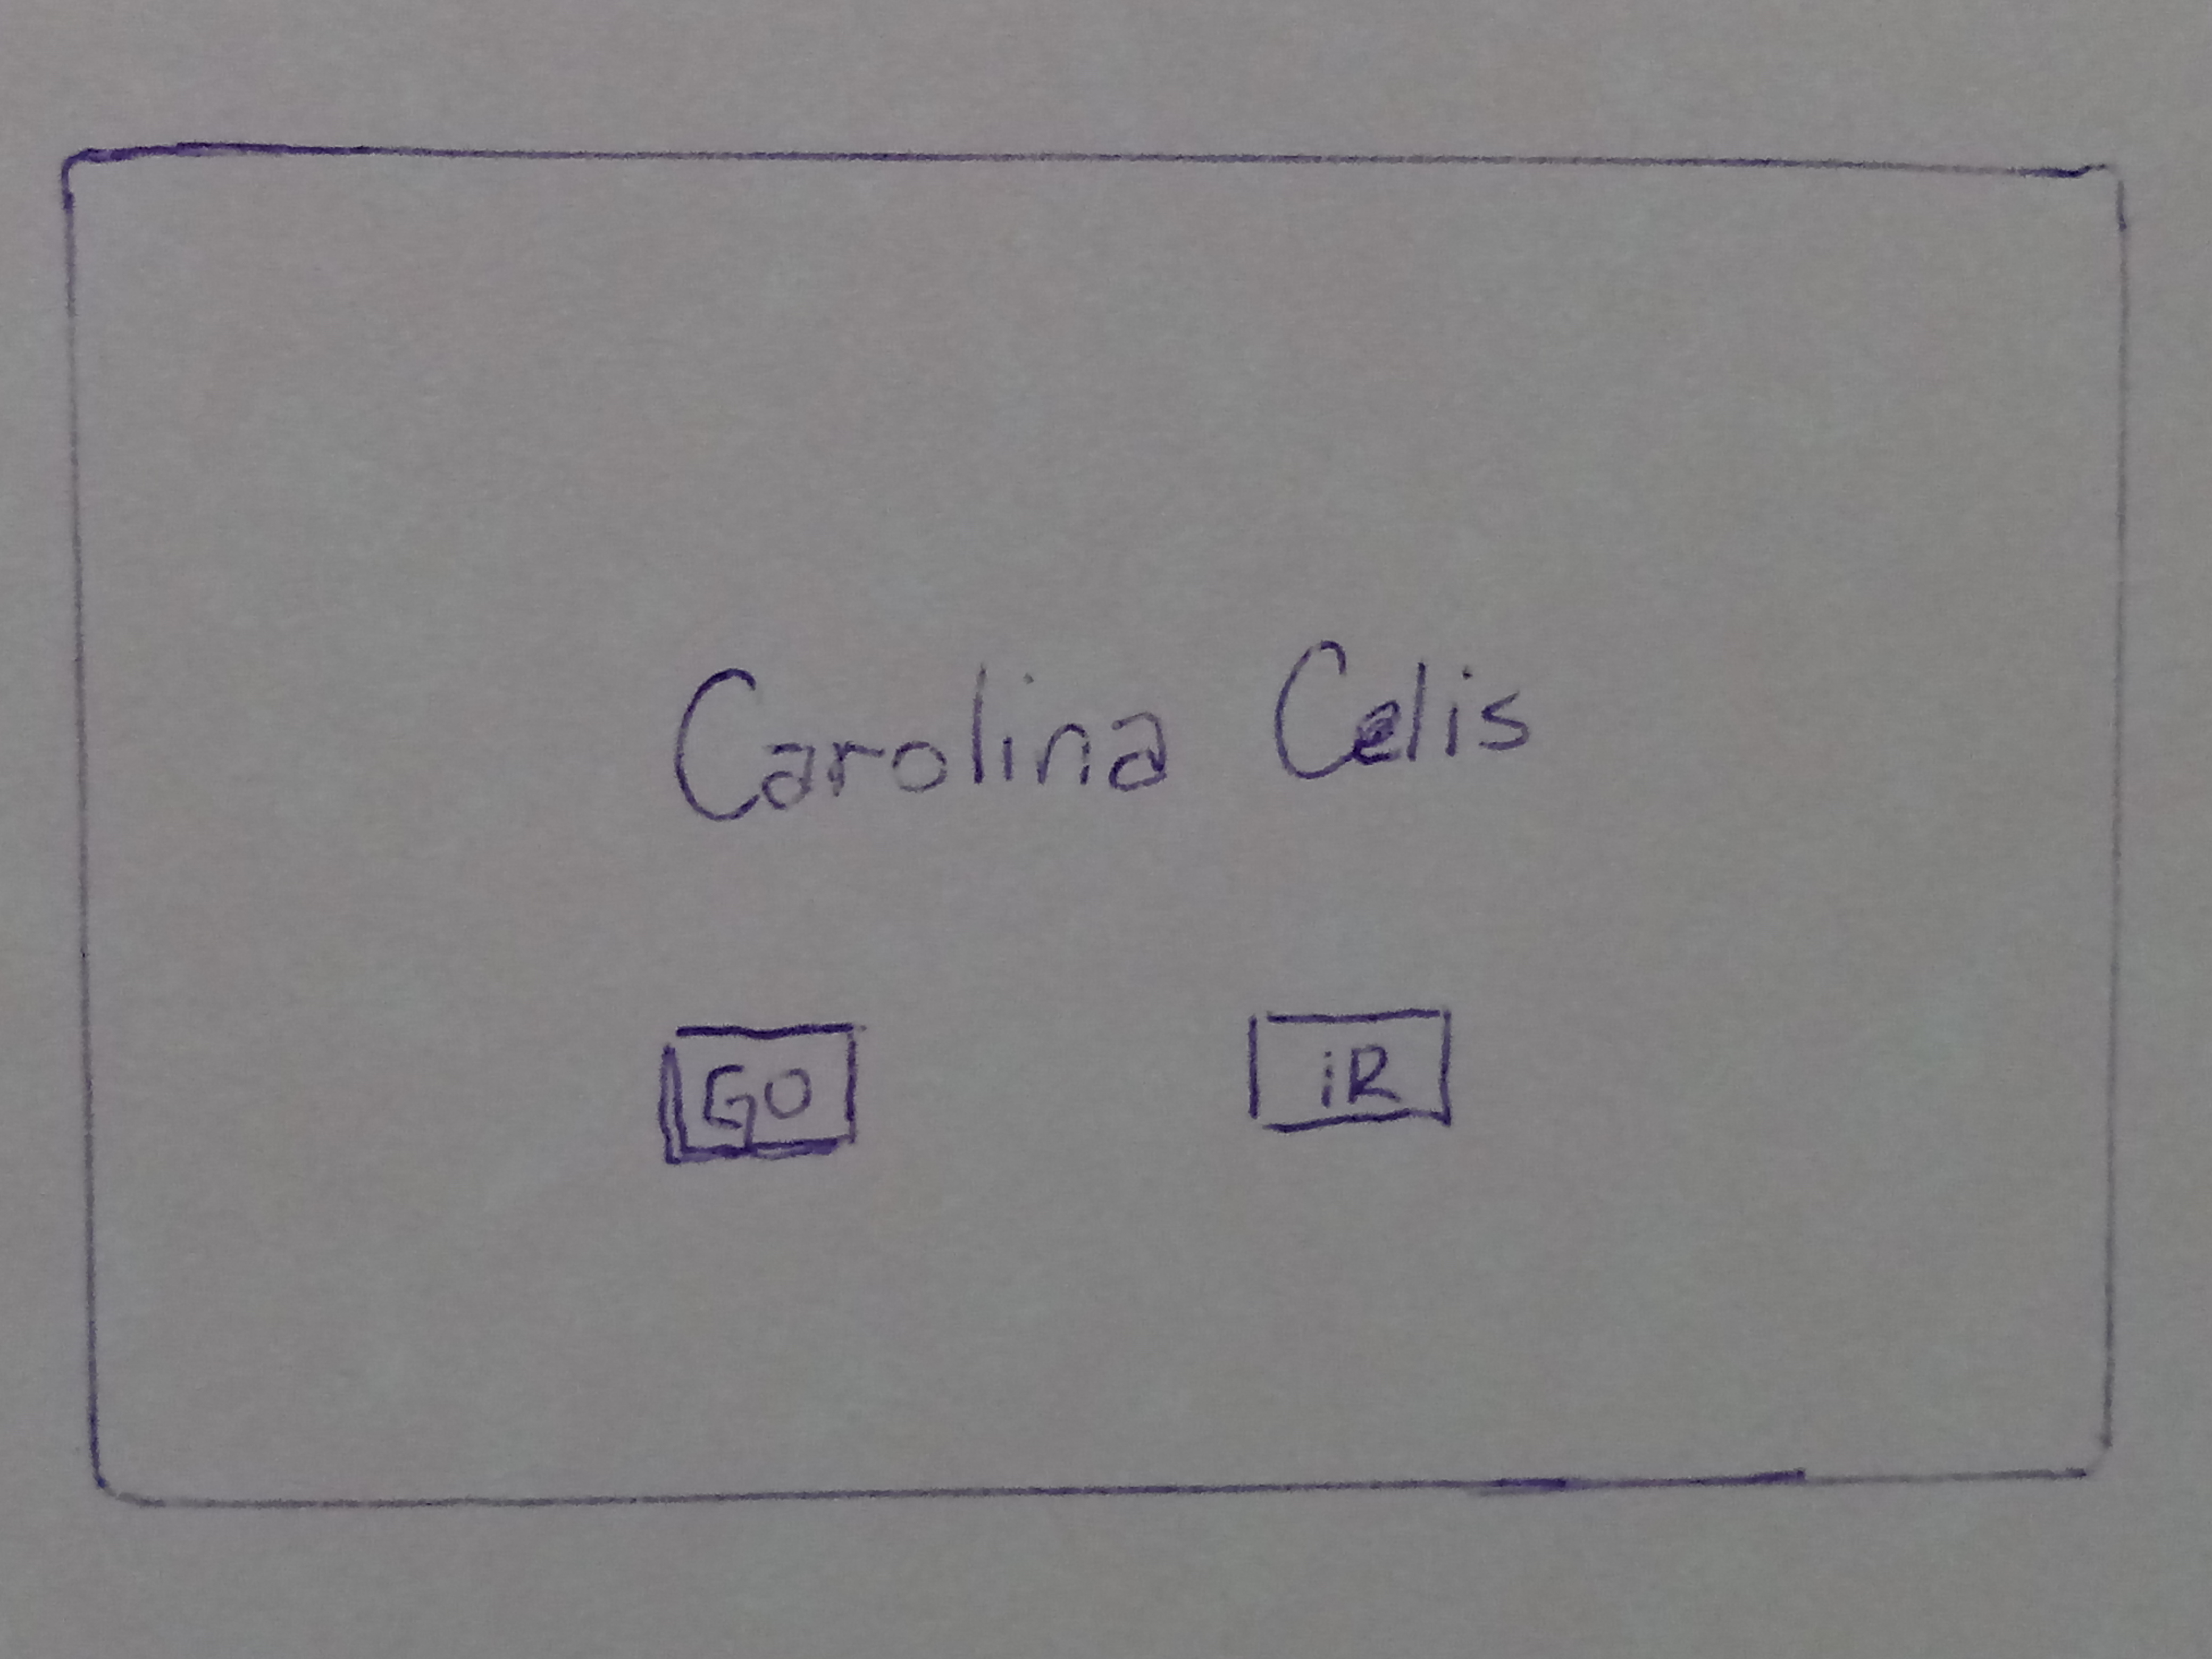 Carolina Celis
GO iR